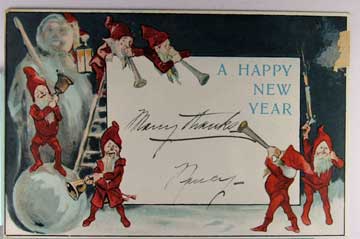 A HAPPY
NEW
YEAR
Many thanks
Nancy